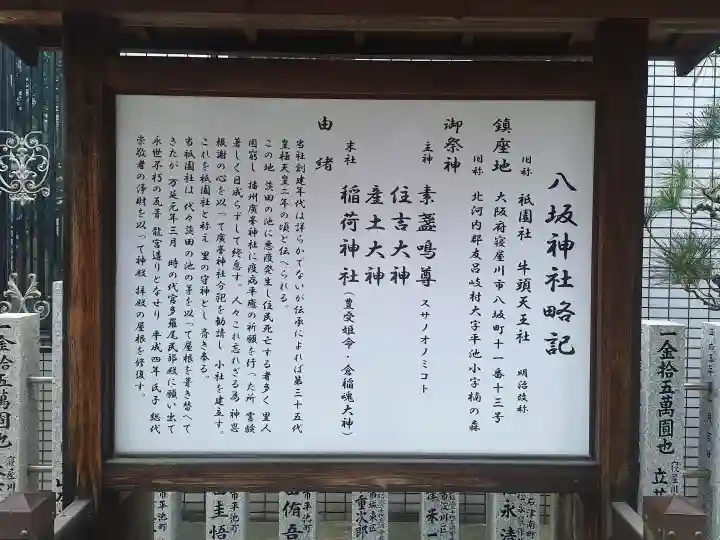 八坂神社略記
旧称 祇園社 牛頭天王社 明治改称
鎮座地 大阪府寝屋川市八坂町十一番十三号
旧称 北河内郡友呂岐村大字平池小字楠の森
御祭神
主神 素盞鳴尊 スサノオノミコト
住吉大神
産土大神
末社 稲荷神社（豊受姫命・倉稲魂大神）
由緒
当社創建年代は詳らかでないが伝承によれば第三十五代
皇極天皇二年の頃と伝へられる。
この地 茨田の池に悪疫発生し住民死亡する者多く 里人
困窮し 播州廣峯神社に疫病平癒の祈願を行った所 霊験
著しく日成らずして終息す。人々これ忘れざる為 神恩
報謝の心を以って廣峯神社分祀を勧請し 小社を建立す。
これを祇園社と称え 里の守神とし 斉き奉る。
当祇園社は 代々茨田の池の茅を以って屋根を葺き替へて
きたが 万延元年三月 時の代官多羅尾民部殿に願い出て
永世不朽の瓦葺 龍宮造りとなせり 平成四年 氏子 総代
崇敬者の浄財を以って神殿 拝殿の屋根を修復す。
一金拾五萬圓也
寝屋川
一金拾五萬圓也
寝屋川
市平池町
圭悟
市平池町
侑吾
重次郎
米一
永清